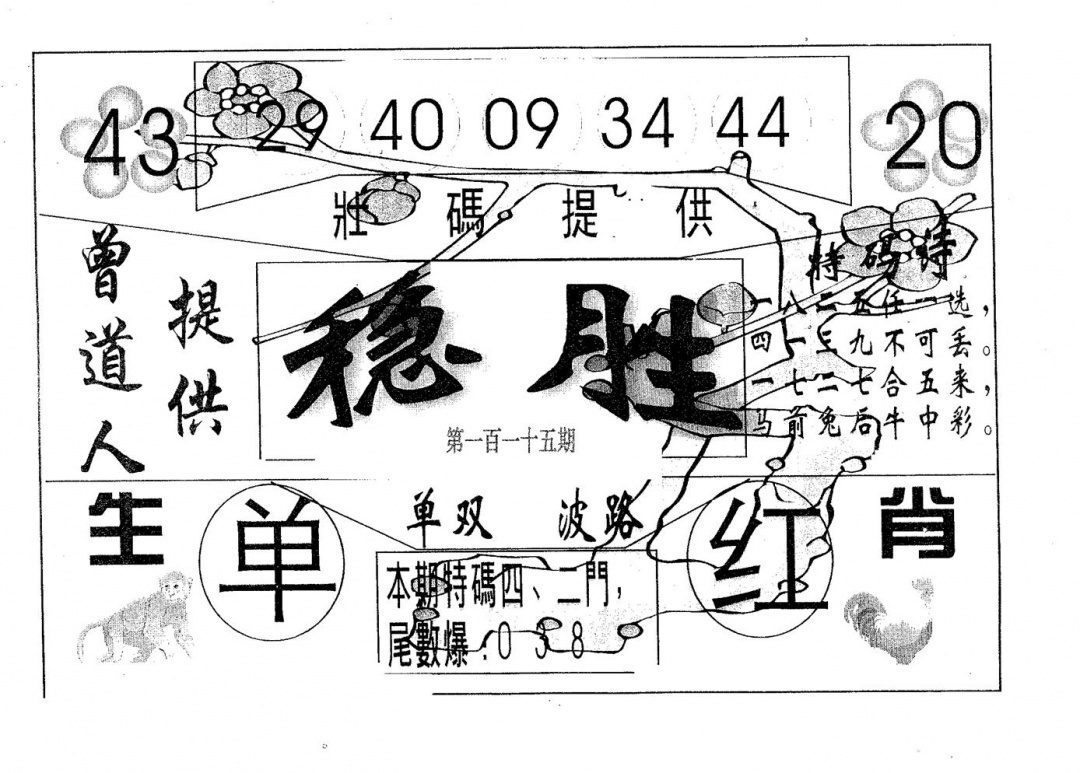 43 29 40 09 34 44 20
壯碼提供
曾道人
提供
稳胜
第一百一十五期
特码诗
一八二五任一选，
四一三九不可丢。
一七二七合五来，
马前兔后牛中彩。
生肖
单双 波路
单
红
本期特碼四、二門，
尾數爆：0 3 8